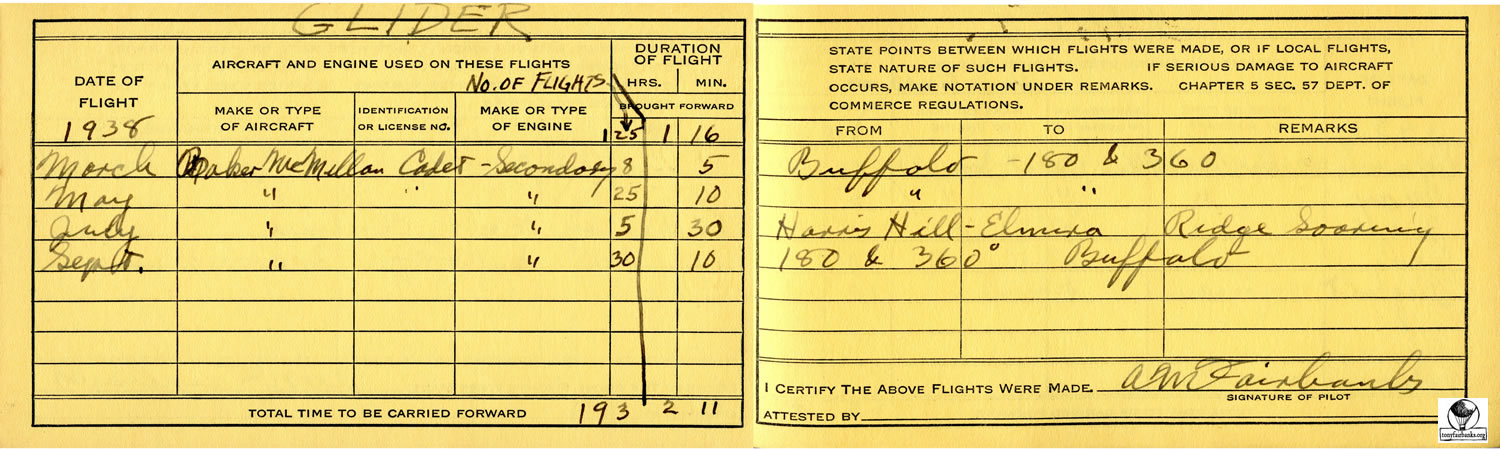 GLIDER
DATE OF FLIGHT
1938
AIRCRAFT AND ENGINE USED ON THESE FLIGHTS
No. OF FLIGHTS
DURATION OF FLIGHT
HRS. MIN.
MAKE OR TYPE OF AIRCRAFT
IDENTIFICATION OR LICENSE NO.
MAKE OR TYPE OF ENGINE
BROUGHT FORWARD
125 1 16
March Baker McMillan Cadet - Secondary 8 5
May " " " 25 10
July " " 5 30
Sept. " " 30 10
TOTAL TIME TO BE CARRIED FORWARD 193 2 11
STATE POINTS BETWEEN WHICH FLIGHTS WERE MADE, OR IF LOCAL FLIGHTS,
STATE NATURE OF SUCH FLIGHTS. IF SERIOUS DAMAGE TO AIRCRAFT
OCCURS, MAKE NOTATION UNDER REMARKS. CHAPTER 5 SEC. 57 DEPT. OF
COMMERCE REGULATIONS.
FROM TO REMARKS
Buffalo - 180 & 360
" "
Harris Hill - Elmira Ridge Soaring
180 & 360° Buffalo
I CERTIFY THE ABOVE FLIGHTS WERE MADE. A M Fairbanks
SIGNATURE OF PILOT
ATTESTED BY
tonyfairbanks.org